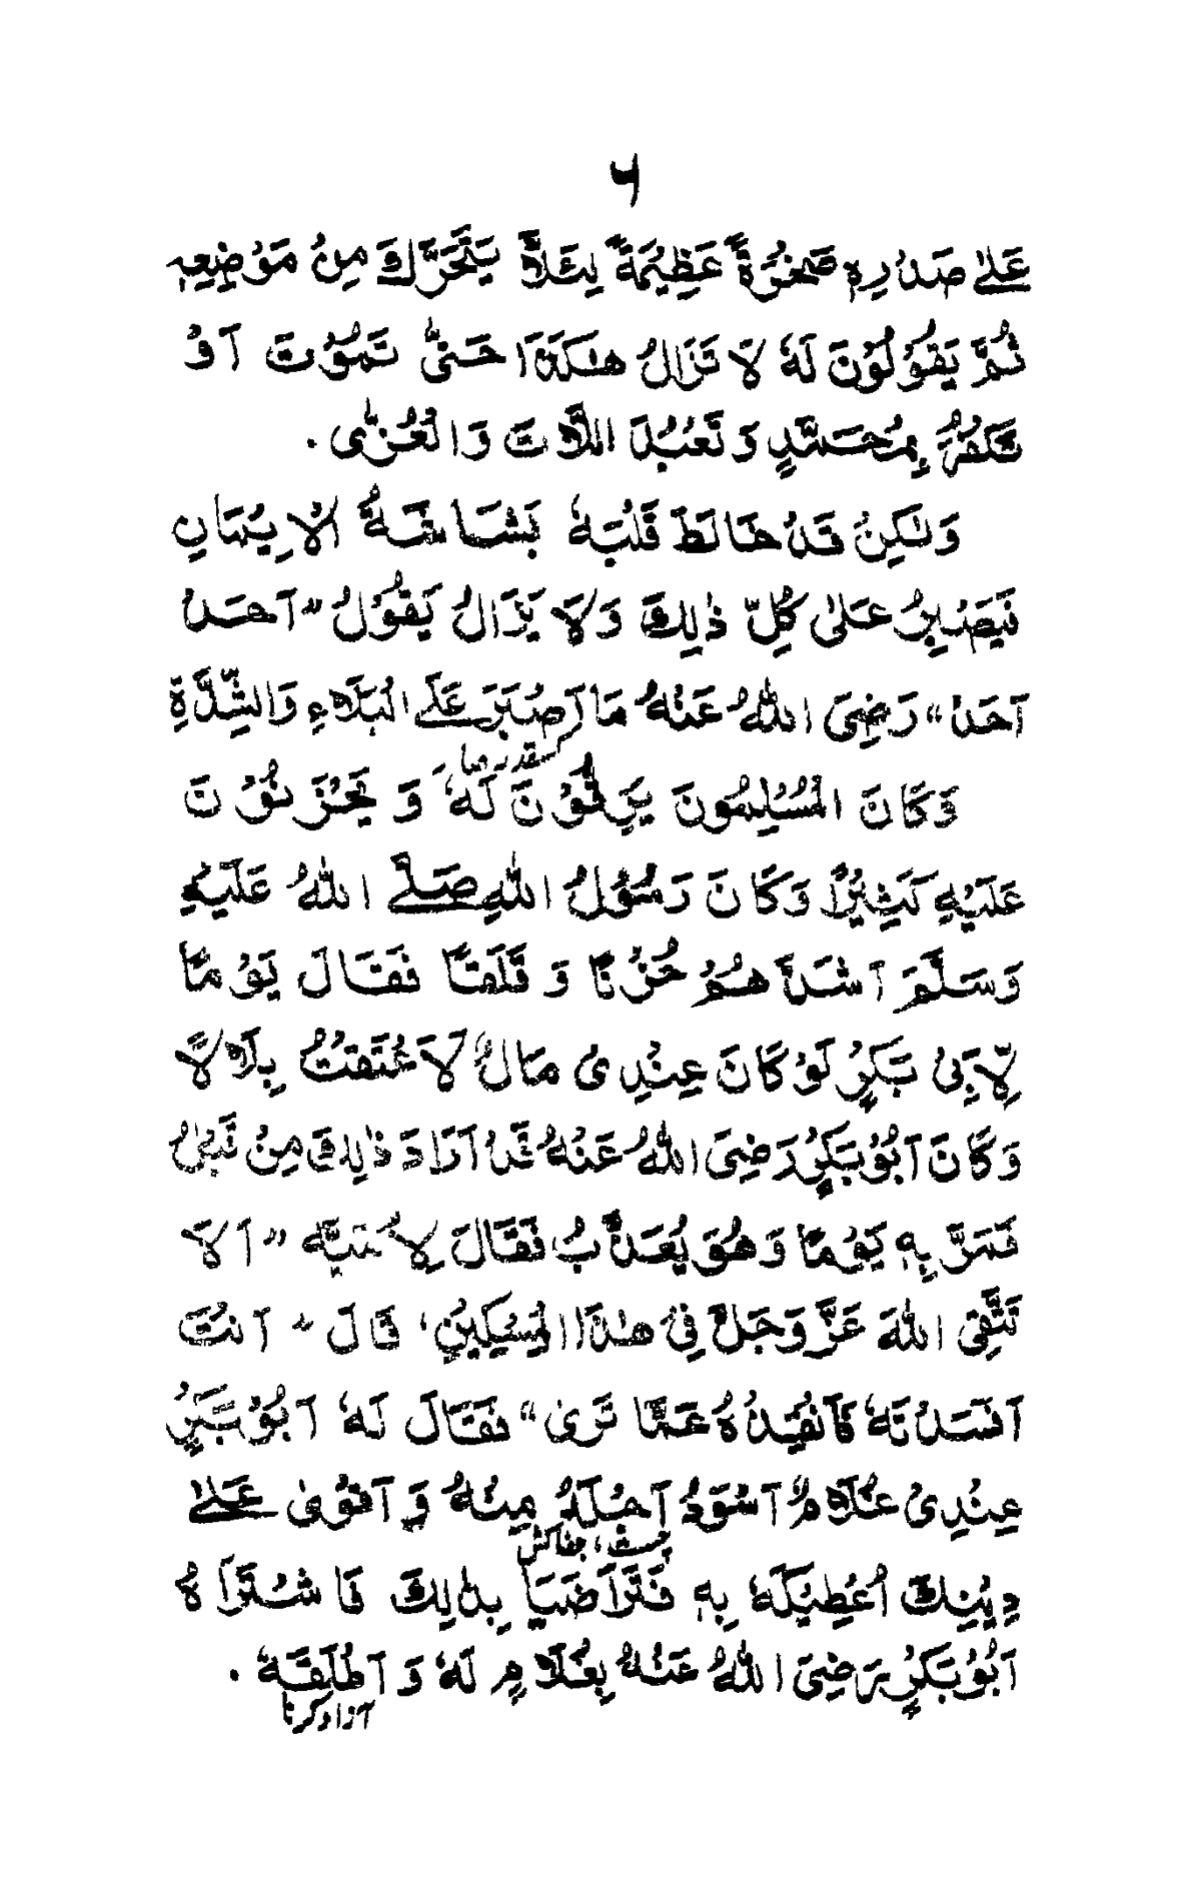 ۶
عَلٰى صَدْرِهٖ صَخْرَةً عَظِيْمَةً لِئَلَّا يَتَحَرَّكَ مِنْ مَوْضِعِهٖ
ثُمَّ يَقُوْلُوْنَ لَهٗ لَا تَزَالُ هٰكَذَا حَتّٰى تَمُوْتَ اَوْ
تَكْفُرَ بِمُحَمَّدٍ وَ تَعْبُدَ اللَّاتَ وَ الْعُزّٰى ۔
وَلٰكِنْ قَدْ خَالَطَ قَلْبَهٗ بَشَاشَةُ الْاِيْمَانِ
فَيَصْبِرُ عَلٰى كُلِّ ذٰلِكَ وَلَا يَزَالُ يَقُوْلُ " اَحَدْ
اَحَدْ " رَضِيَ اللّٰهُ عَنْهُ مَا اَصْبَرَ عَلَى الْبَلَاءِ وَالشِّدَّةِ
كسقدر صبر
وَكَانَ الْمُسْلِمُونَ يَرِقُّوْنَ لَهٗ وَ يَحْزَنُوْنَ
عَلَيْهِ كَثِيْرًا وَكَانَ رَسُوْلُ اللّٰهِ صَلَّى اللّٰهُ عَلَيْهِ
وَسَلَّمَ اَشَدَّهُمْ حُزْنًا وَ قَلَقًا فَقَالَ يَوْمًا
لِاَبِيْ بَكْرٍ لَوْ كَانَ عِنْدِيْ مَالٌ لَاَعْتَقْتُ بِلَالًا
وَكَانَ اَبُوْبَكْرٍ رَضِيَ اللّٰهُ عَنْهُ قَدْ اَرَادَ ذٰلِكَ مِنْ قَبْلُ
فَمَرَّ بِهٖ يَوْمًا وَهُوَ يُعَذَّبُ فَقَالَ لِاُمَيَّةَ " اَلَا
تَتَّقِي اللّٰهَ عَزَّ وَجَلَّ فِيْ هٰذَا الْمِسْكِيْنِ، قَالَ " اَنْتَ
اَفْسَدْتَهٗ فَاَنْقِذْهُ عَمَّا تَرٰى " فَقَالَ لَهٗ اَبُوْبَكْرٍ
عِنْدِيْ غُلَامٌ اَسْوَدُ اَجْلَدُ مِنْهُ وَ اَقْوٰى عَلٰى
چست، جفاكش
دِيْنِكَ اُعْطِيْكَهٗ بِهٖ فَتَرَاضَيَا بِذٰلِكَ فَاشْتَرَاهُ
اَبُوْبَكْرٍ رَضِيَ اللّٰهُ عَنْهُ بِغُلَامٍ لَهٗ وَ اَطْلَقَهٗ ۔
آزاد كرنا